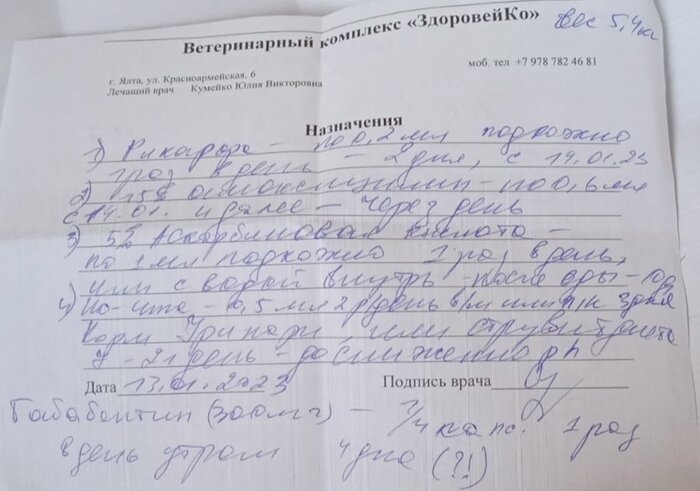 Ветеринарный комплекс «ЗдоровейКо» Вес 5,4кг
г. Ялта, ул. Красноармейская, 6
моб. тел +7 978 782 46 81
Лечащий врач Кумейко Юлия Викторовна
Назначения
1) Рикарфа - по 0,2 мл подкожно
1 раз в день - 2 дня, с 14.01.23
2) 15% амоксициллин - по 0,6 мл
с 14.01. и далее - через день
3) 5% Аскорбиновая кислота -
по 1 мл подкожно 1 раз в день,
или с водой внутрь после еды -
4) Но-шпа - 0,5 мл 2 р/день в/м или п/к 3 дня
Корм Уринари, или струвит диета
- 21 день - до снижения ph
Дата 13.01.2023 Подпись врача
Габабентин (300мг) - 1/4 капс. 1 раз
в день утром 4 дня (?!)